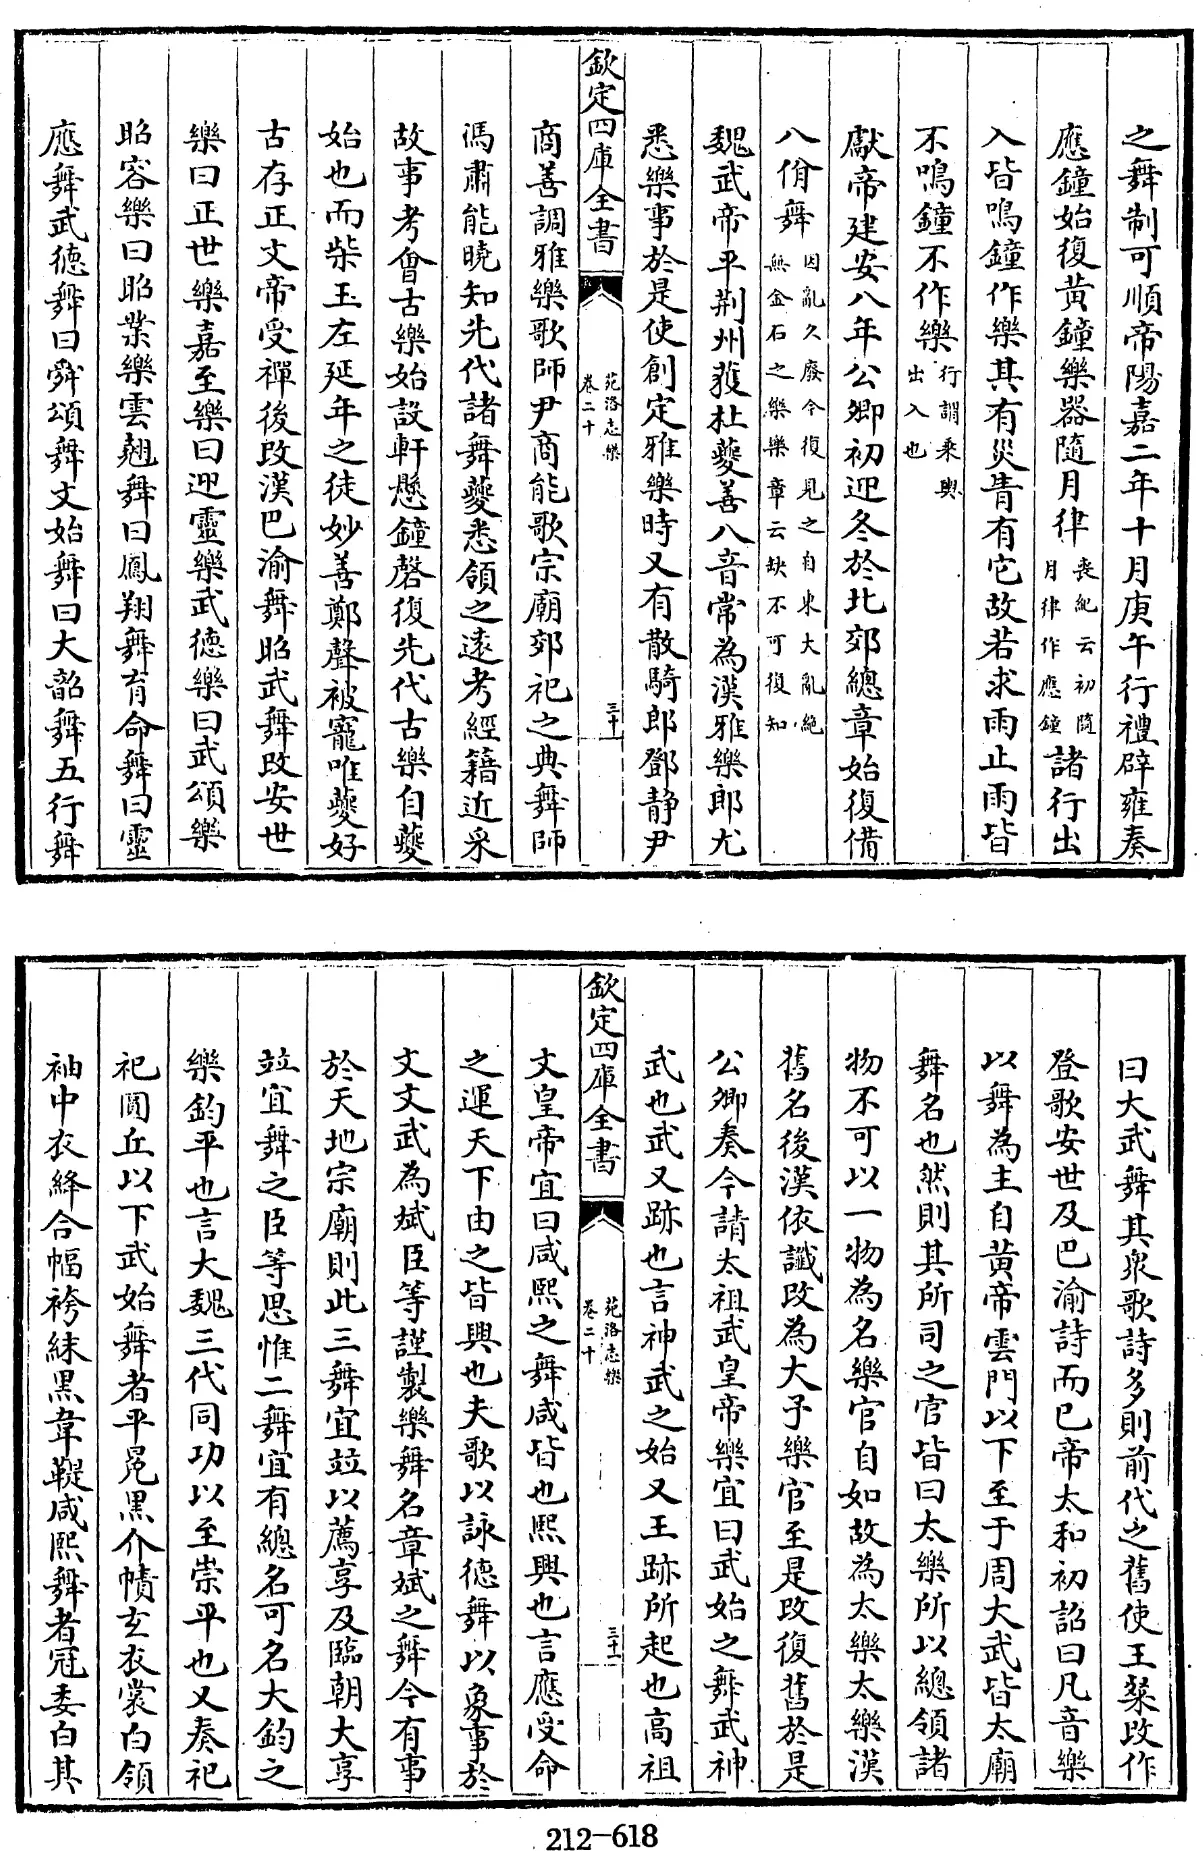 之舞制可順帝陽嘉二年十月庚午行禮辟雍奏
應鐘始復黃鐘樂器隨月律喪紀云初隨月律作應鐘諸行出
入皆鳴鐘作樂其有災眚有它故若求雨止雨皆
不鳴鐘不作樂行謂乘輿出入也
獻帝建安八年公卿初迎冬於北郊總章始復備
八佾舞因亂久廢今復見之自東大亂絶無金石之樂樂章云缺不可復知
魏武帝平荆州獲杜夔善八音常為漢雅樂郎尤
悉樂事於是使創定雅樂時又有散騎郎鄧静尹
欽定四庫全書
苑洛志樂
卷二十
三十
商善調雅樂歌師尹商能歌宗廟郊祀之典舞師
馮肅能曉知先代諸舞夔悉領之遠考經籍近采
故事考會古樂始設軒懸鐘磬復先代古樂自夔
始也而柴玉左延年之徒妙善鄭聲被寵唯夔好
古存正文帝受禪後改漢巴渝舞昭武舞改安世
樂曰正世樂嘉至樂曰迎靈樂武德樂曰武頌樂
昭容樂曰昭業樂雲翹舞曰鳳翔舞育命舞曰靈
應舞武德舞曰舜頌舞文始舞曰大韶舞五行舞
曰大武舞其衆歌詩多則前代之舊使王粲改作
登歌安世及巴渝詩而已帝太和初詔曰凡音樂
以舞為主自黃帝雲門以下至于周大武皆太廟
舞名也然則其所司之官皆曰太樂所以總領諸
物不可以一物為名樂官自如故為太樂太樂漢
舊名後漢依讖改為大予樂官至是改復舊於是
公卿奏今請太祖武皇帝樂宜曰武始之舞武神
武也武又跡也言神武之始又王跡所起也高祖
欽定四庫全書
苑洛志樂
卷二十
三十一
文皇帝宜曰咸熙之舞咸皆也熙興也言應受命
之運天下由之皆興也夫歌以詠德舞以象事於
文文武為斌臣等謹製樂舞名章斌之舞今有事
於天地宗廟則此三舞宜竝以薦享及臨朝大享
竝宜舞之臣等思惟二舞宜有總名可名大鈞之
樂鈞平也言大魏三代同功以至崇平也又奏祀
祀圓丘以下武始舞者平冕黑介幘玄衣裳白領
袖中衣絳合幅袴絑黑韋鞮咸熙舞者冠委白其
212-618